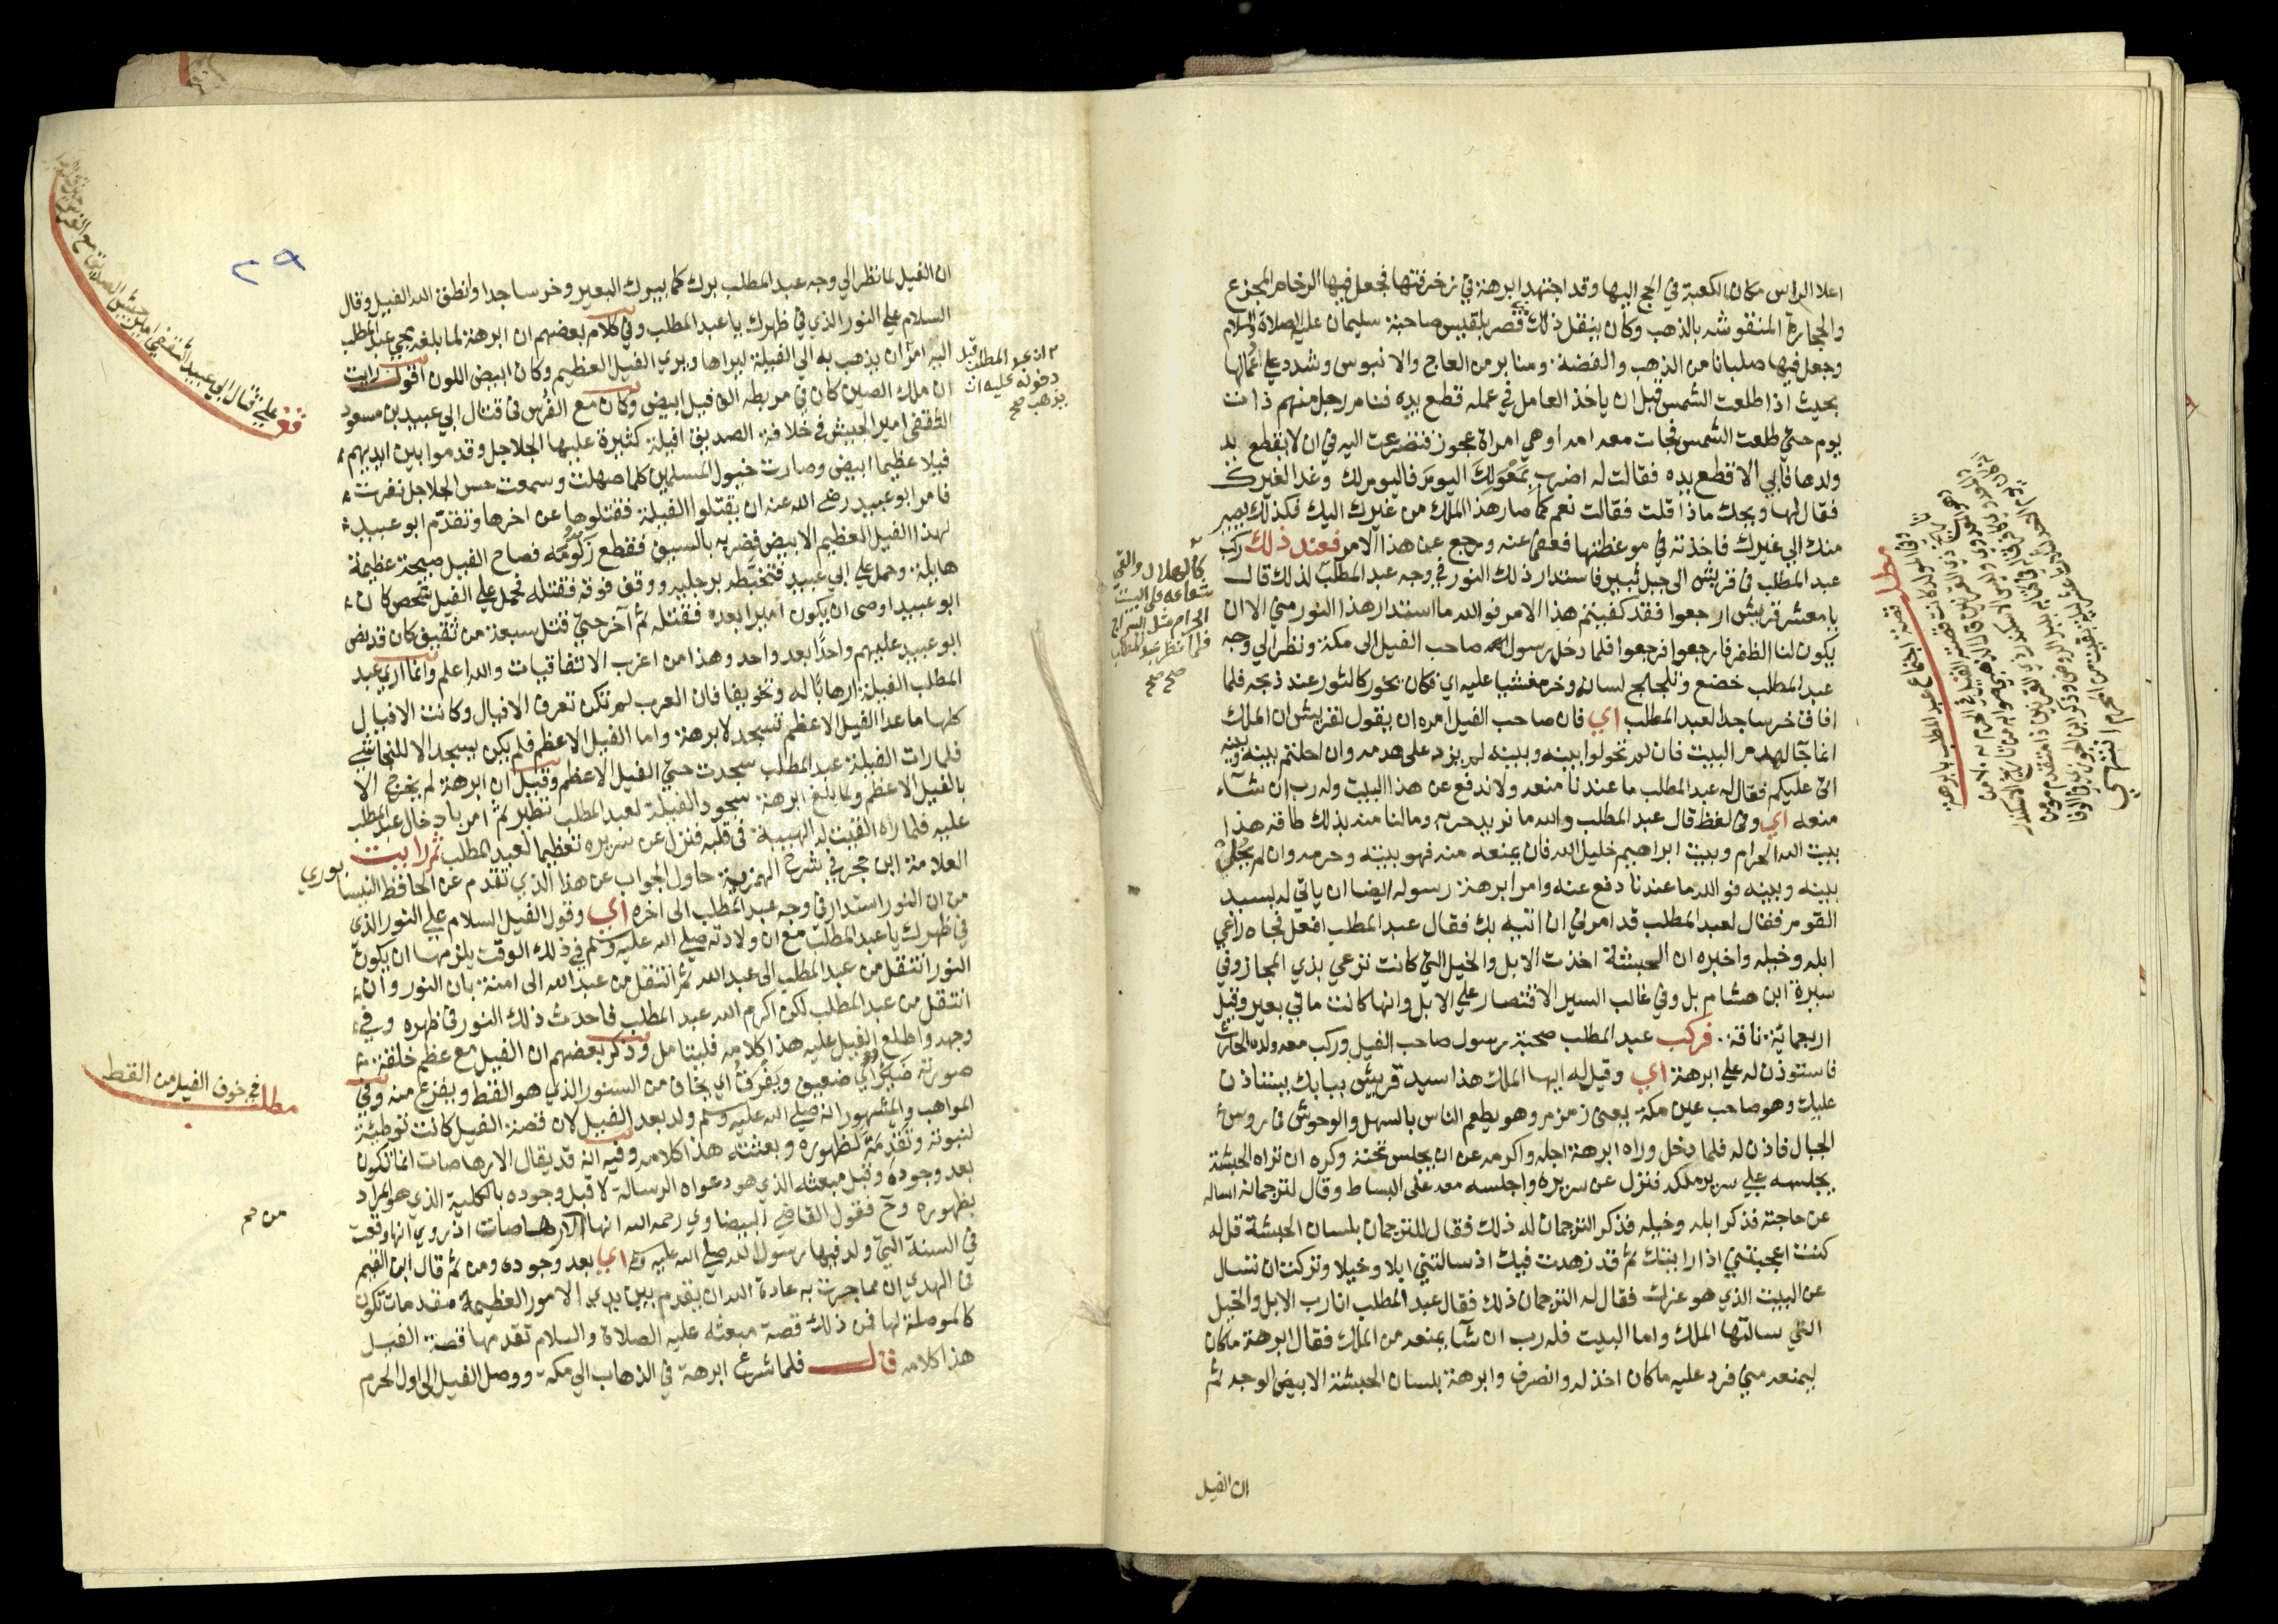 اعلا الراس مكان الكعبة في الحج اليها وقد اجتهد ابرهة في زخرفتها فجعل فيها الرخام المجزع
والحجارة المنقوشه بالذهب وكان ينقل ذلك من قصر بلقيس صاحبة سليمان عليه الصلاة والسلام
وجعل فيها صلبانا من الذهب والفضة ومنابر من العاج والابنوس وشدد على عمالها
بحيث اذا طلعت الشمس قبل ان ياخذ العامل في عمله قطع يده فنام رجل منهم ذات
يوم حتي طلعت الشمس فجات معه امه وهي امراة عجوز فتضرعت اليه في ان لا يقطع يد
ولدها فابي الا قطع يده فقالت له اضرب بمعولك اليوم فاليوم لك وغدا لغيرك
فقال لها ويحك ماذا قلت فقالت نعم كما صار هذا الملك من غيرك اليك فكذلك يصير
منك الي غيرك فاخذته في موعظتها فعفى عنه ورجع عن هذا الامر فعند ذلك ركب
عبد المطلب في قريش الى جبل ثبير فاستدار ذلك النور في وجه عبد المطلب لذلك قال
يا معشر قريش ارجعوا فقد كفيتم هذا الامر فوالله ما استدار هذا النور مني الا ان
يكون لنا الظفر فارجعوا فرجعوا فلما دخل رسول صاحب الفيل الى مكة ونظر الي وجه
عبد المطلب خضع وتلجلج لسانه وخر مغشيا عليه اي فكان يخور كالثور عند ذبحه فلما
افاق خر ساجدا لعبد المطلب اي فان صاحب الفيل امره ان يقول لقريش ان الملك
انما جا لهدم البيت فان لم تحولوا بينه وبينه لم يزد على هدمه وان احلتم بينه وبينه
اتى عليكم فقال له عبد المطلب ما عندنا منعه ولا ندفع عن هذا البيت وله رب ان شآء
منعه اي وفي لفظ قال عبد المطلب والله ما نريد حربه وما لنا منه بذلك طاقه هذا
بيت الله الحرام وبيت ابراهيم خليل الله فان يمنعه منه فهو بيته وحرمه وان لم يُخلِ
بينه وبينه فوالله ما عندنا دفع عنه وامر ابرهة رسوله ايضا ان ياتي له بسيد
القوم فقال لعبد المطلب قد امرني ان اتيه بك فقال عبد المطلب افعل فجاه راعي
ابله وخيله واخبره ان الحبشة اخذت الابل والخيل التي كانت ترعي بذي المجاز وفي
سيرة ابن هشام بل وفي غالب السير الاقتصار علي الابل وانها كانت ماتي بعير وقيل
اربعماية ناقة فركب عبد المطلب صحبة رسول صاحب الفيل وركب معه ولده الحارث
فاستوذن له علي ابرهة اي وقيل له ايها الملك هذا سيد قريش ببابك يستاذن
عليك وهو صاحب عين مكة يعني زمزم وهو يطعم الناس بالسهل والوحوش في روس
الجبال فاذن له فلما دخل وراه ابرهة اجله واكرمه عن ان يجلس تحته وكره ان تراه الحبشة
يجلسه علي سرير ملكه فنزل عن سريره واجلسه معه على البساط وقال لترجمانه اساله
عن حاجته فذكر ابله وخيله فذكر الترجمان له ذلك فقال للترجمان بلسان الحبشة قل له
كنت اعجبتني اذ رايتك ثم قد زهدت فيك اذ سالتني ابلا وخيلا وتركت ان تسال
عن البيت الذي هو عزك فقال له الترجمان ذلك فقال عبد المطلب انا رب الابل والخيل
التي سالتها الملك واما البيت فله رب ان شآ يمنعه من الملك فقال ابرهة ما كان
ليمنعه مني فرد عليه ما كان اخذ له وانصرف وابرهة بلسان الحبشة الابيض الوجه ثم
ان الفيل
كالهلال والقي
شعاعه على البيت
الحرام مثل السراج
فلما نظر عبد المطلب
صح صح
مطلب قصة اجتماع عبد المطلب بابرهة
ان الفيل لما نظر الي وجه عبد المطلب برك كما يبرك البعير وخر ساجدا وانطق الله الفيل وقال
السلام علي النور الذي في ظهرك يا عبد المطلب وفي كلام بعضهم ان ابرهة لما بلغه مجي عبد المطلب
اليه امر ان يذهب به الي الفيلة ليراها ويري الفيل العظيم وكان ابيض اللون اقول رايت
ان ملك الصين كان في مربطه الف فيل ابيض وكان مع الفرس في قتال ابي عبيد بن مسعود
الثقفي امير الجيش في خلافة الصديق افيلة كثيرة عليها الجلاجل وقدموا بين ايديهم
فيلا عظيما ابيض وصارت خيول المسلمين كلما صهلت وسمعت حس الجلاجل نفرت
فامر ابو عبيد رضي الله عنه ان يقتلوا الفيلة فقتلوها عن اخرها وتقدم ابو عبيد
لهذا الفيل العظيم الابيض فضربه بالسيف فقطع زلومه فصاح الفيل صيحة عظيمة
هايلة وحمل علي ابي عبيد فتخبطه برجليه ووقف فوقه فقتله فحمل علي الفيل شخص كان
ابو عبيد اوصى ان يكون اميرا بعده فقتله ثم آخر حتي قتل سبعة من ثقيف كان قد نص
ابو عبيد عليهم واحدًا بعد واحد وهذا من اغرب الاتفاقيات والله اعلم وانما اري عبد
المطلب الفيلة ارهابًا له وتخويفا فان العرب لم تكن تعرف الافيال وكانت الافيال
كلها ما عدا الفيل الاعظم تسجد لابرهة واما الفيل الاعظم فلم يكن يسجد الا للنجاشي
فلما رات الفيلة عبد المطلب سجدت حتي الفيل الاعظم وقيل ان ابرهة لم يخرج الا
بالفيل الاعظم ولما بلغ ابرهة سجود الفيلة لعبد المطلب تطير ثم امر بادخال عبد المطلب
عليه فلما راه القيت له الهيبة في قلبه فنزل عن سريره تعظيما لعبد المطلب ثم رايت
العلامة ابن حجر في شرح الهمزية حاول الجواب عن هذا الذي تقدم عن الحافظ النيسابوري
من ان النور استدار في وجه عبد المطلب الى اخره اي وقول الفيل السلام علي النور الذي
في ظهرك يا عبد المطلب مع ان ولادته صلي الله عليه وسلم في ذلك الوقت يلزمها ان يكون
النور انتقل من عبد المطلب الى عبد الله ثم انتقل من عبد الله الى امنة بان النور وان
انتقل من عبد المطلب لكن اكرم الله عبد المطلب فاحدث ذلك النور في ظهره وفي
وجهه واطلع الفيل عليه هذا كلامه فليتامل وذكر بعضهم ان الفيل مع عظم خلقته
صورته ضعيف ويفرق اي يخاف من السنور الذي هو القط ويفزع منه وفي
المواهب والمشهور انه صلي الله عليه وسلم ولد بعد الفيل لان قصة الفيل كانت توطئة
لنبوته وتقدمة لظهوره وبعثته هذا كلامه وفيه انه قد يقال الارهاصات انما تكون
بعد وجوده وقبل مبعثه الذي هو دعواه الرسالة لا قبل وجوده بالكلية الذي هو المراد
بظهوره وح فقول القاضي البيضاوي رحمه الله انها من الارهاصات اذ روي انها وقعت
في السنة التي ولد فيها رسول الله صلي الله عليه وسلم اي بعد وجوده ومن ثم قال ابن القيم
في الهدي ان مما جرت به عادة الله ان يقدم بين يدي الامور العظيمة مقدمات تكون
كالموصلة لها فمن ذلك قصة مبعثه عليه الصلاة والسلام تقدمها قصة الفيل
هذا كلامه قال فلما شرع ابرهة في الذهاب الي مكة ووصل الفيل الى اول الحرم
ان عبد المطلب قبل
دخوله عليه ان
يذهب صح
قف علي قتال ابي عبيد الثقفي امير جيش الصديق مع الفرس
٢٩
مطلب في خوف الفيل من القط
من صح